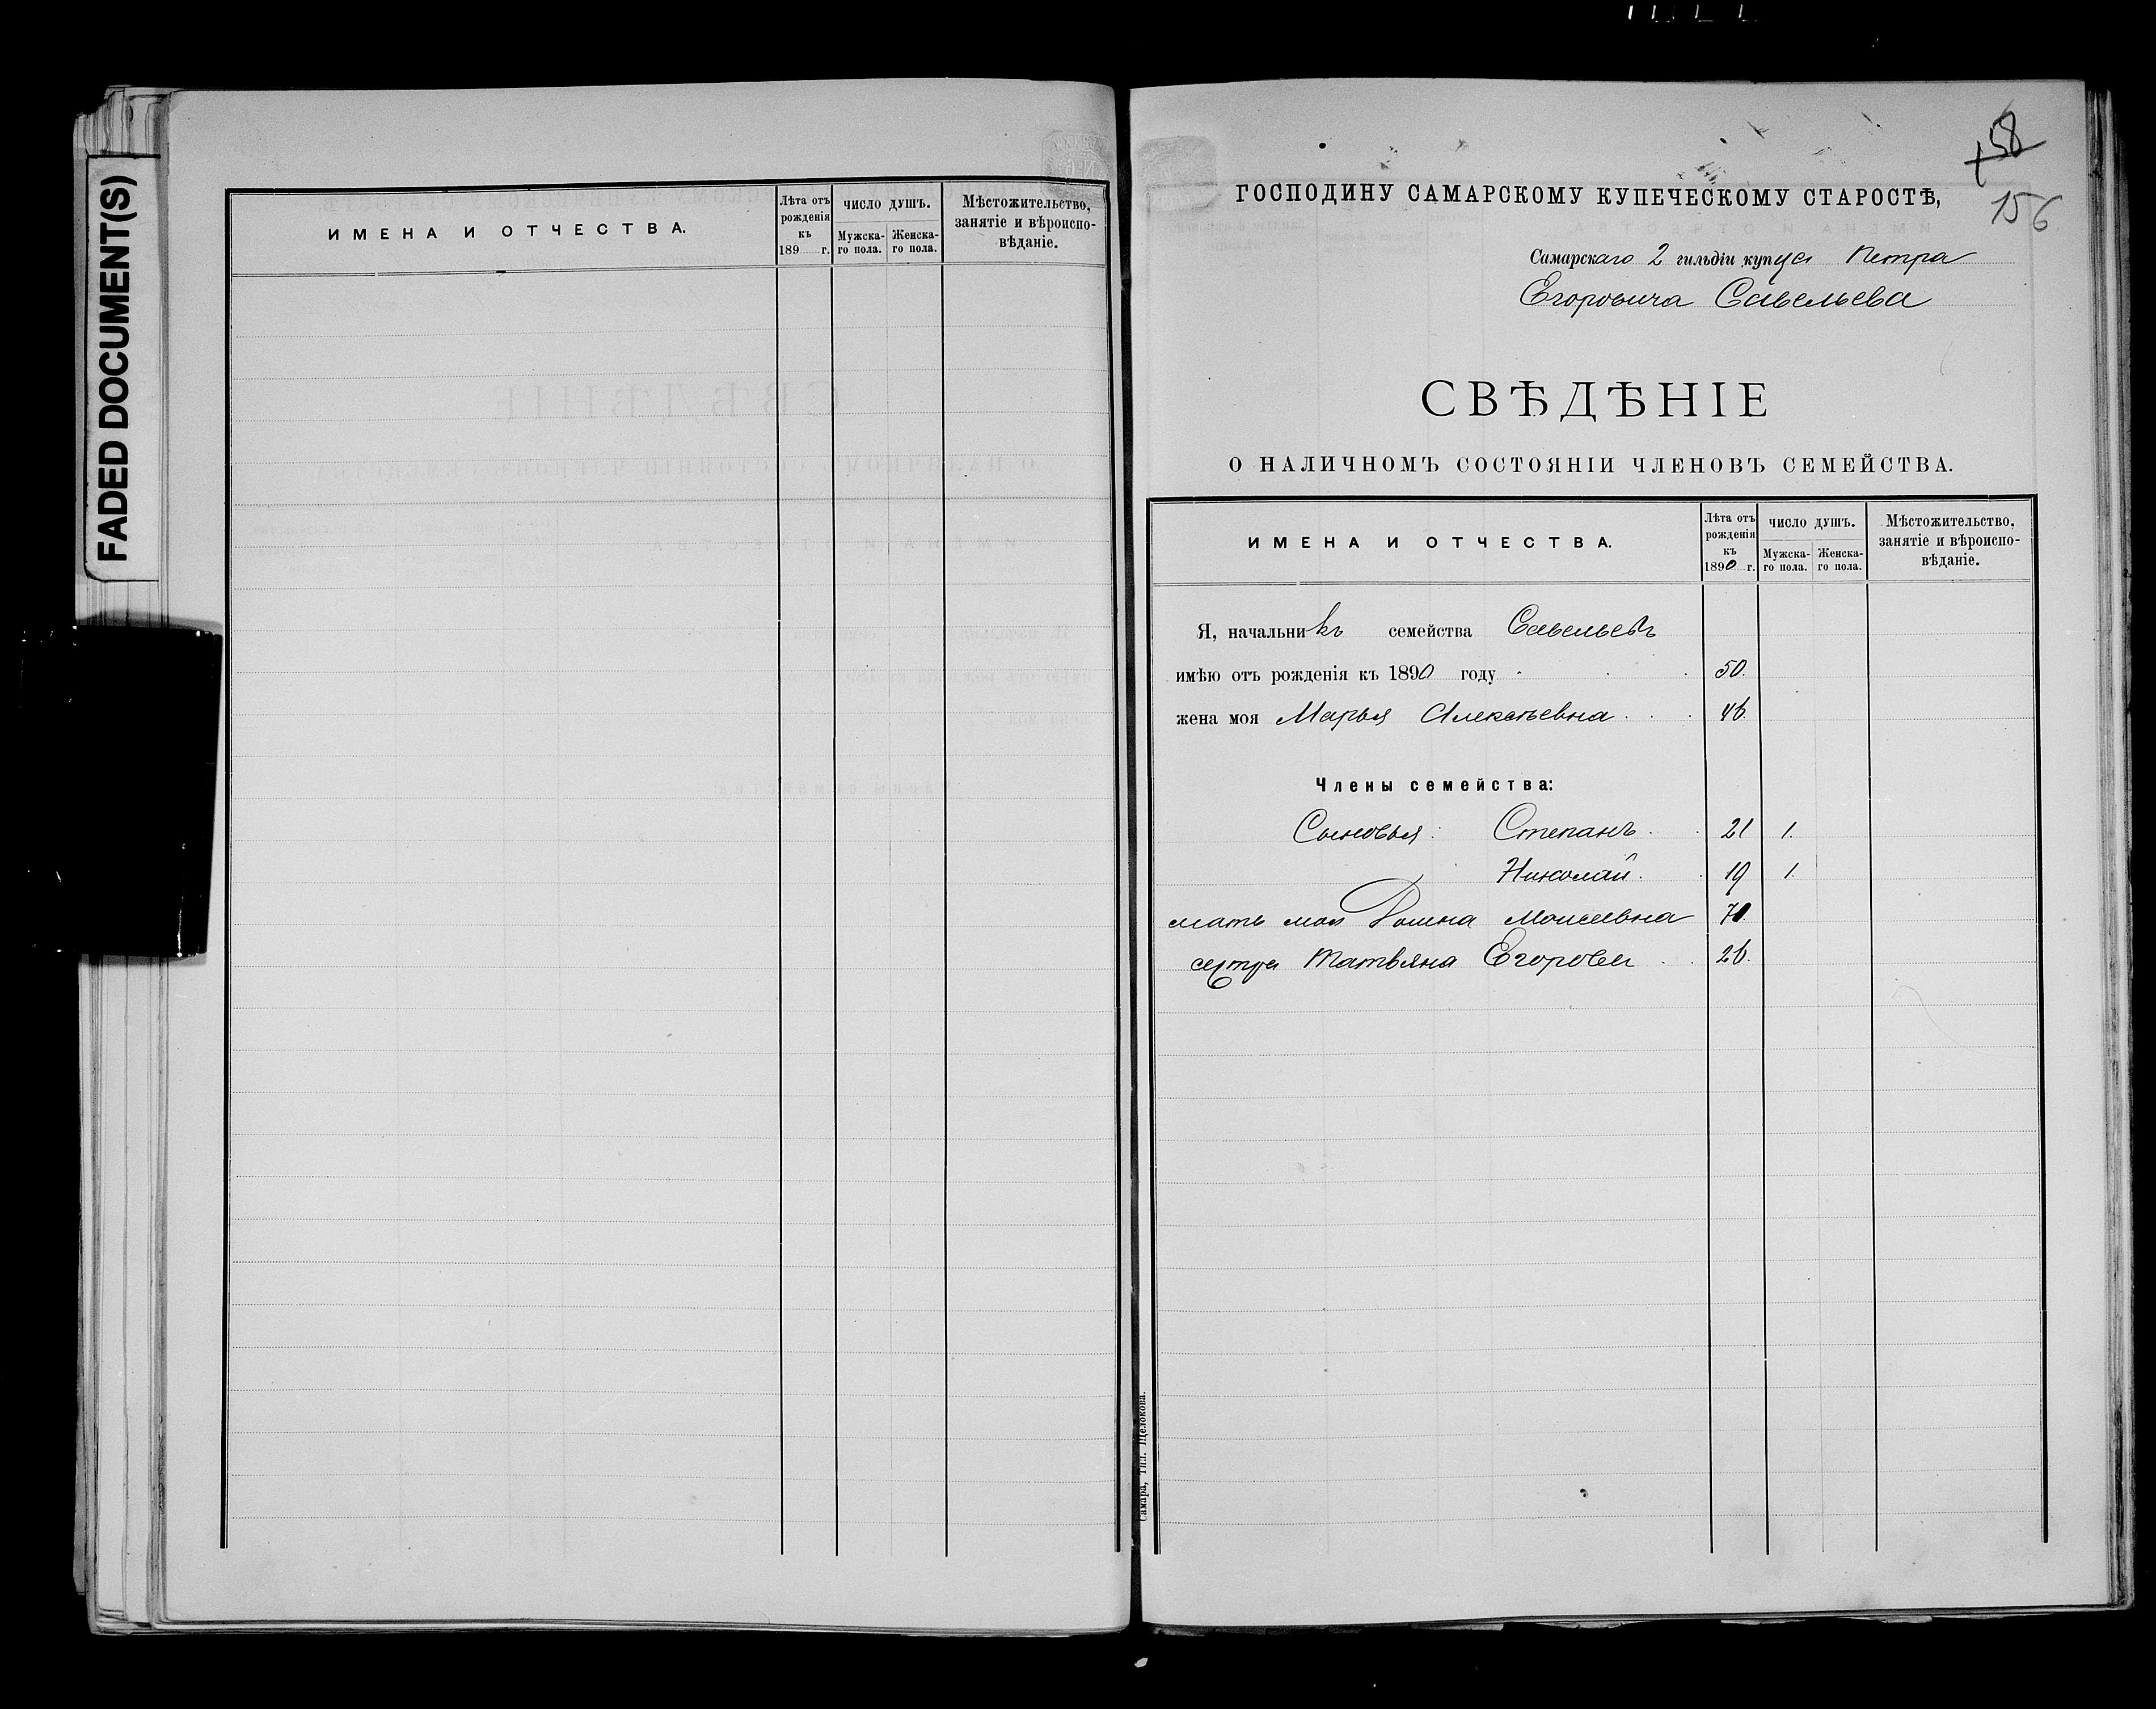 FADED DOCUMENT(S)
ИМЕНА И ОТЧЕСТВА.
Лѣта отъ рожденія къ 189 г.
ЧИСЛО ДУШЪ.
Мужска-го пола.
Женска-го пола.
Мѣстожительство, занятіе и вѣроиспо-вѣданіе.
58
156
ГОСПОДИНУ САМАРСКОМУ КУПЕЧЕСКОМУ СТАРОСТѢ,
Самарскаго 2 гильдіи купца Петра
Егоровича Савельева
СВѢДѢНІЕ
О НАЛИЧНОМЪ СОСТОЯНІИ ЧЛЕНОВЪ СЕМЕЙСТВА.
ИМЕНА И ОТЧЕСТВА.
Лѣта отъ рожденія къ 1890 г.
ЧИСЛО ДУШЪ.
Мужска-го пола.
Женска-го пола.
Мѣстожительство, занятіе и вѣроиспо-вѣданіе.
Я, начальникъ семейства Савельевъ
имѣю отъ рожденія къ 1890 году 50.
жена моя Марья Алексѣевна 46.
Члены семейства:
Сыновья: Степанъ 21 1.
Николай 19 1.
мать моя Моисеевна 70.
сестра Татьяна Егорова 26.
Самара, Тип. Щелокова.